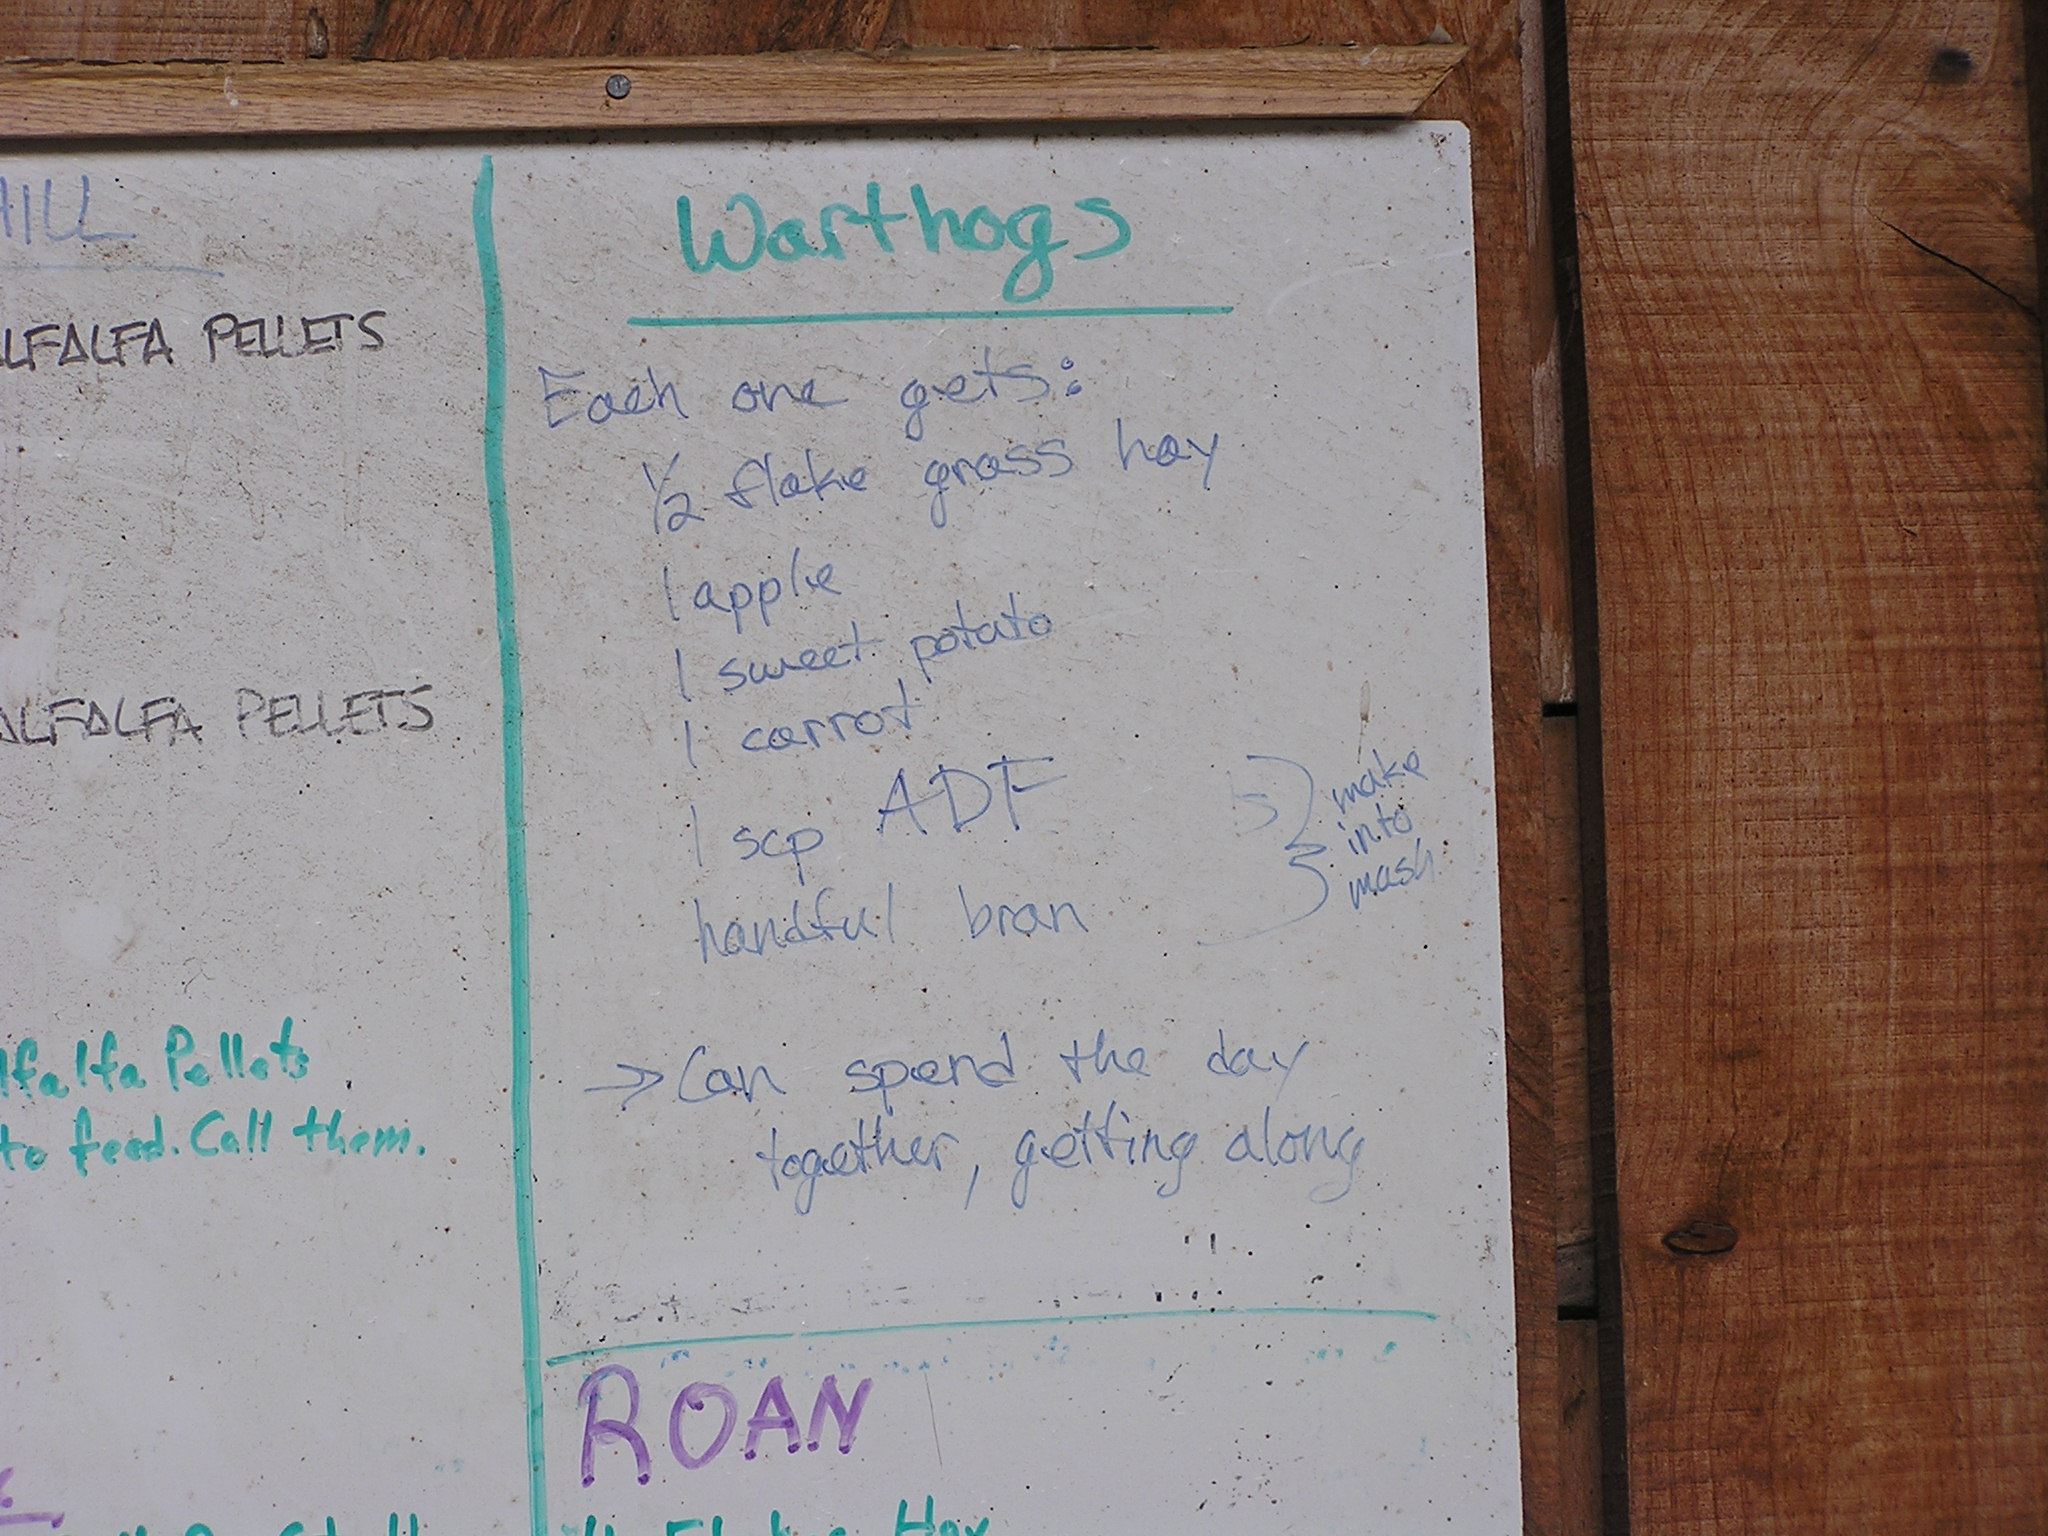 ALFALFA PELLETS
ALFALFA PELLETS
Alfalfa Pellets
to feed. Call them.
Warthogs
Each one gets:
1/2 flake grass hay
1 apple
1 sweet potato
1 carrot
1 scp ADF
handful bran
make
into
mash
→ Can spend the day
together, getting along
ROAN